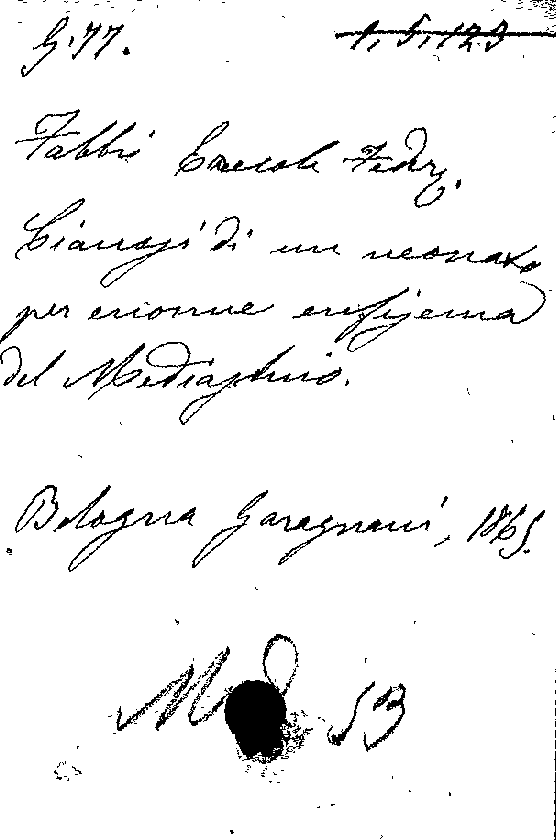 G.77. 1, 5, 123
Fabbri Ercole Feder.
Cianosi di un neonato
per enorme enfisema
del Mediastino.
Bologna Garagnani, 1865.
M 53